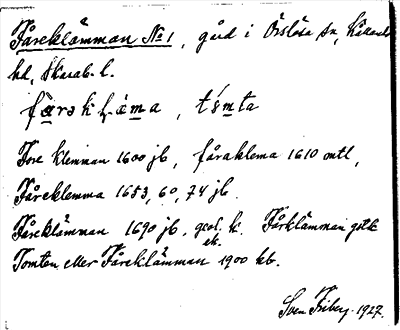 Fåreklämman No 1, gård i Örslösa sn, Kållands
hd, Skarab. l.
fårəkḷäma, tåmta
Fore klemman 1600 jb, fåraklema 1610 mtl,
Fåreklemma 1653, 60, 74 jb.
Fåreklämman 1690 jb, geol. k. Fårklämman gstk
ek.
Tomten eller Fåreklämman 1900 kb.
Sven Friberg. 1927.